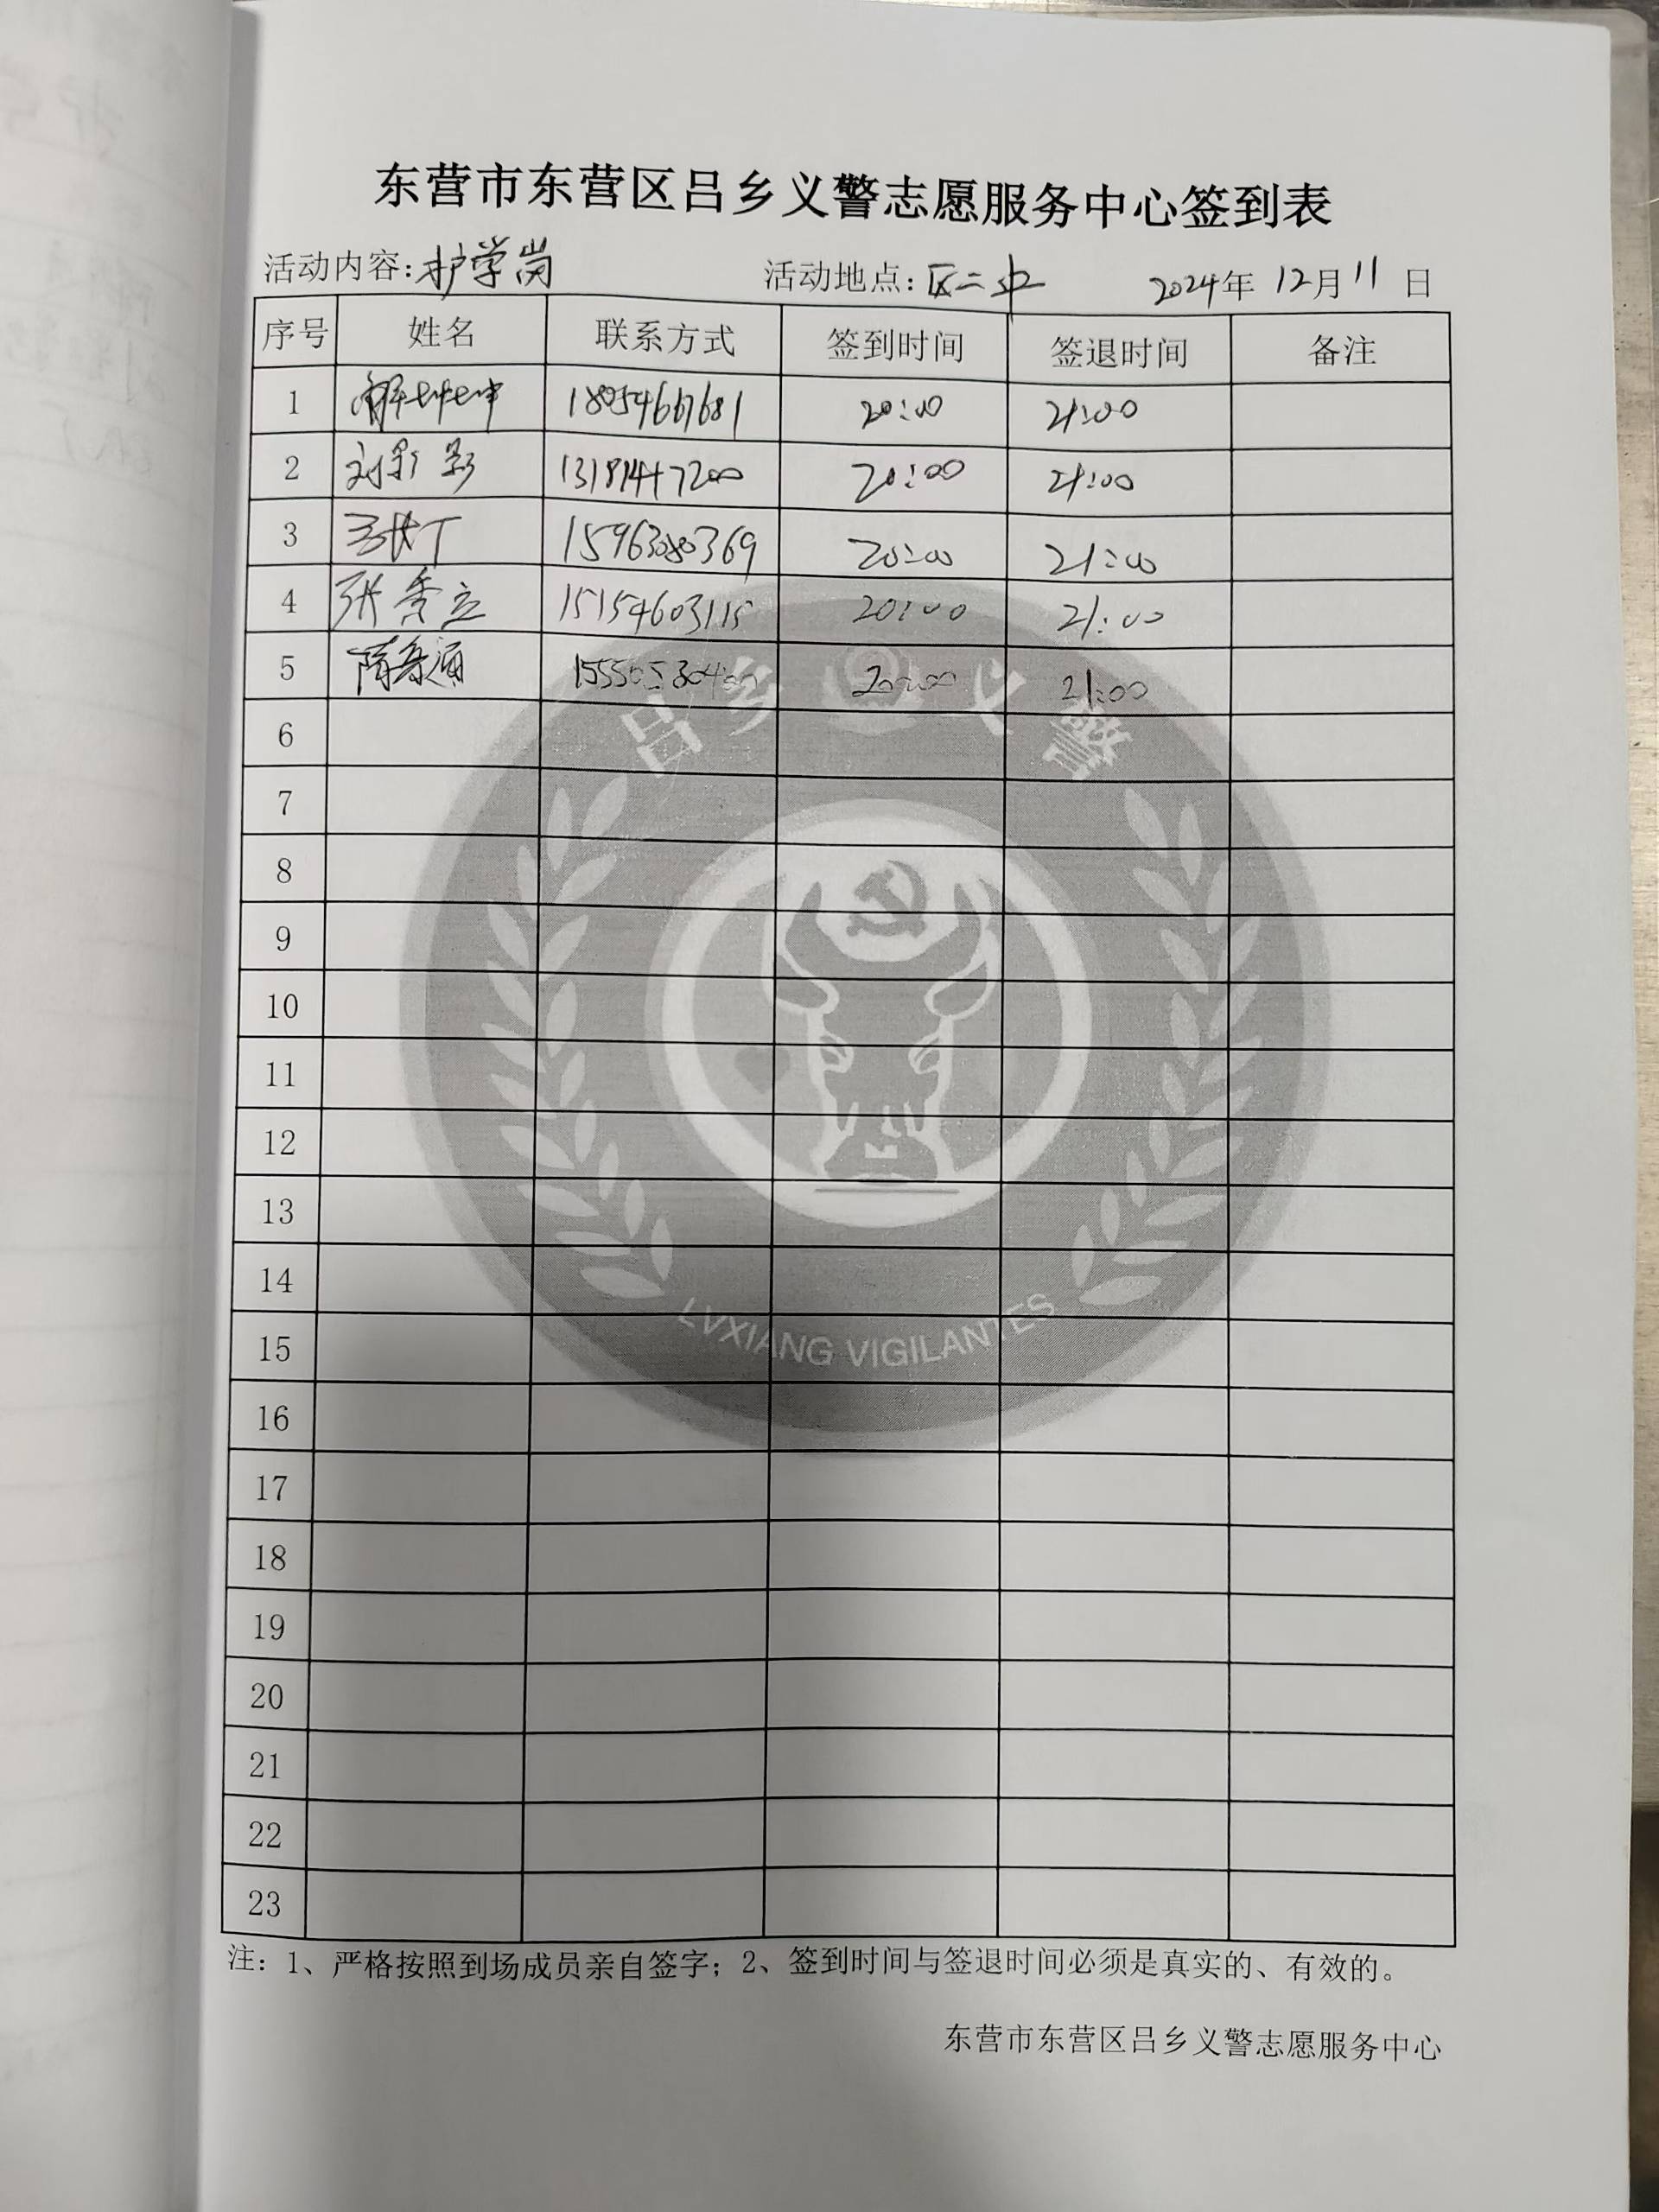 东营市东营区吕乡义警志愿服务中心签到表
活动内容:护学岗 活动地点:区二中 2024年 12月 11 日
序号 姓名 联系方式 签到时间 签退时间 备注
1 20:00 21:00
2 刘彩彩 13181447200 20:00 21:00
3 15963080369 20:00 21:00
4 张秀立 15154603115 20:00 21:00
5 20:00 21:00
6
7
8
9
10
11
12
13
14
15
16
17
18
19
20
21
22
23
吕乡义警
LVXIANG VIGILANTES
注：1、严格按照到场成员亲自签字；2、签到时间与签退时间必须是真实的、有效的。
东营市东营区吕乡义警志愿服务中心